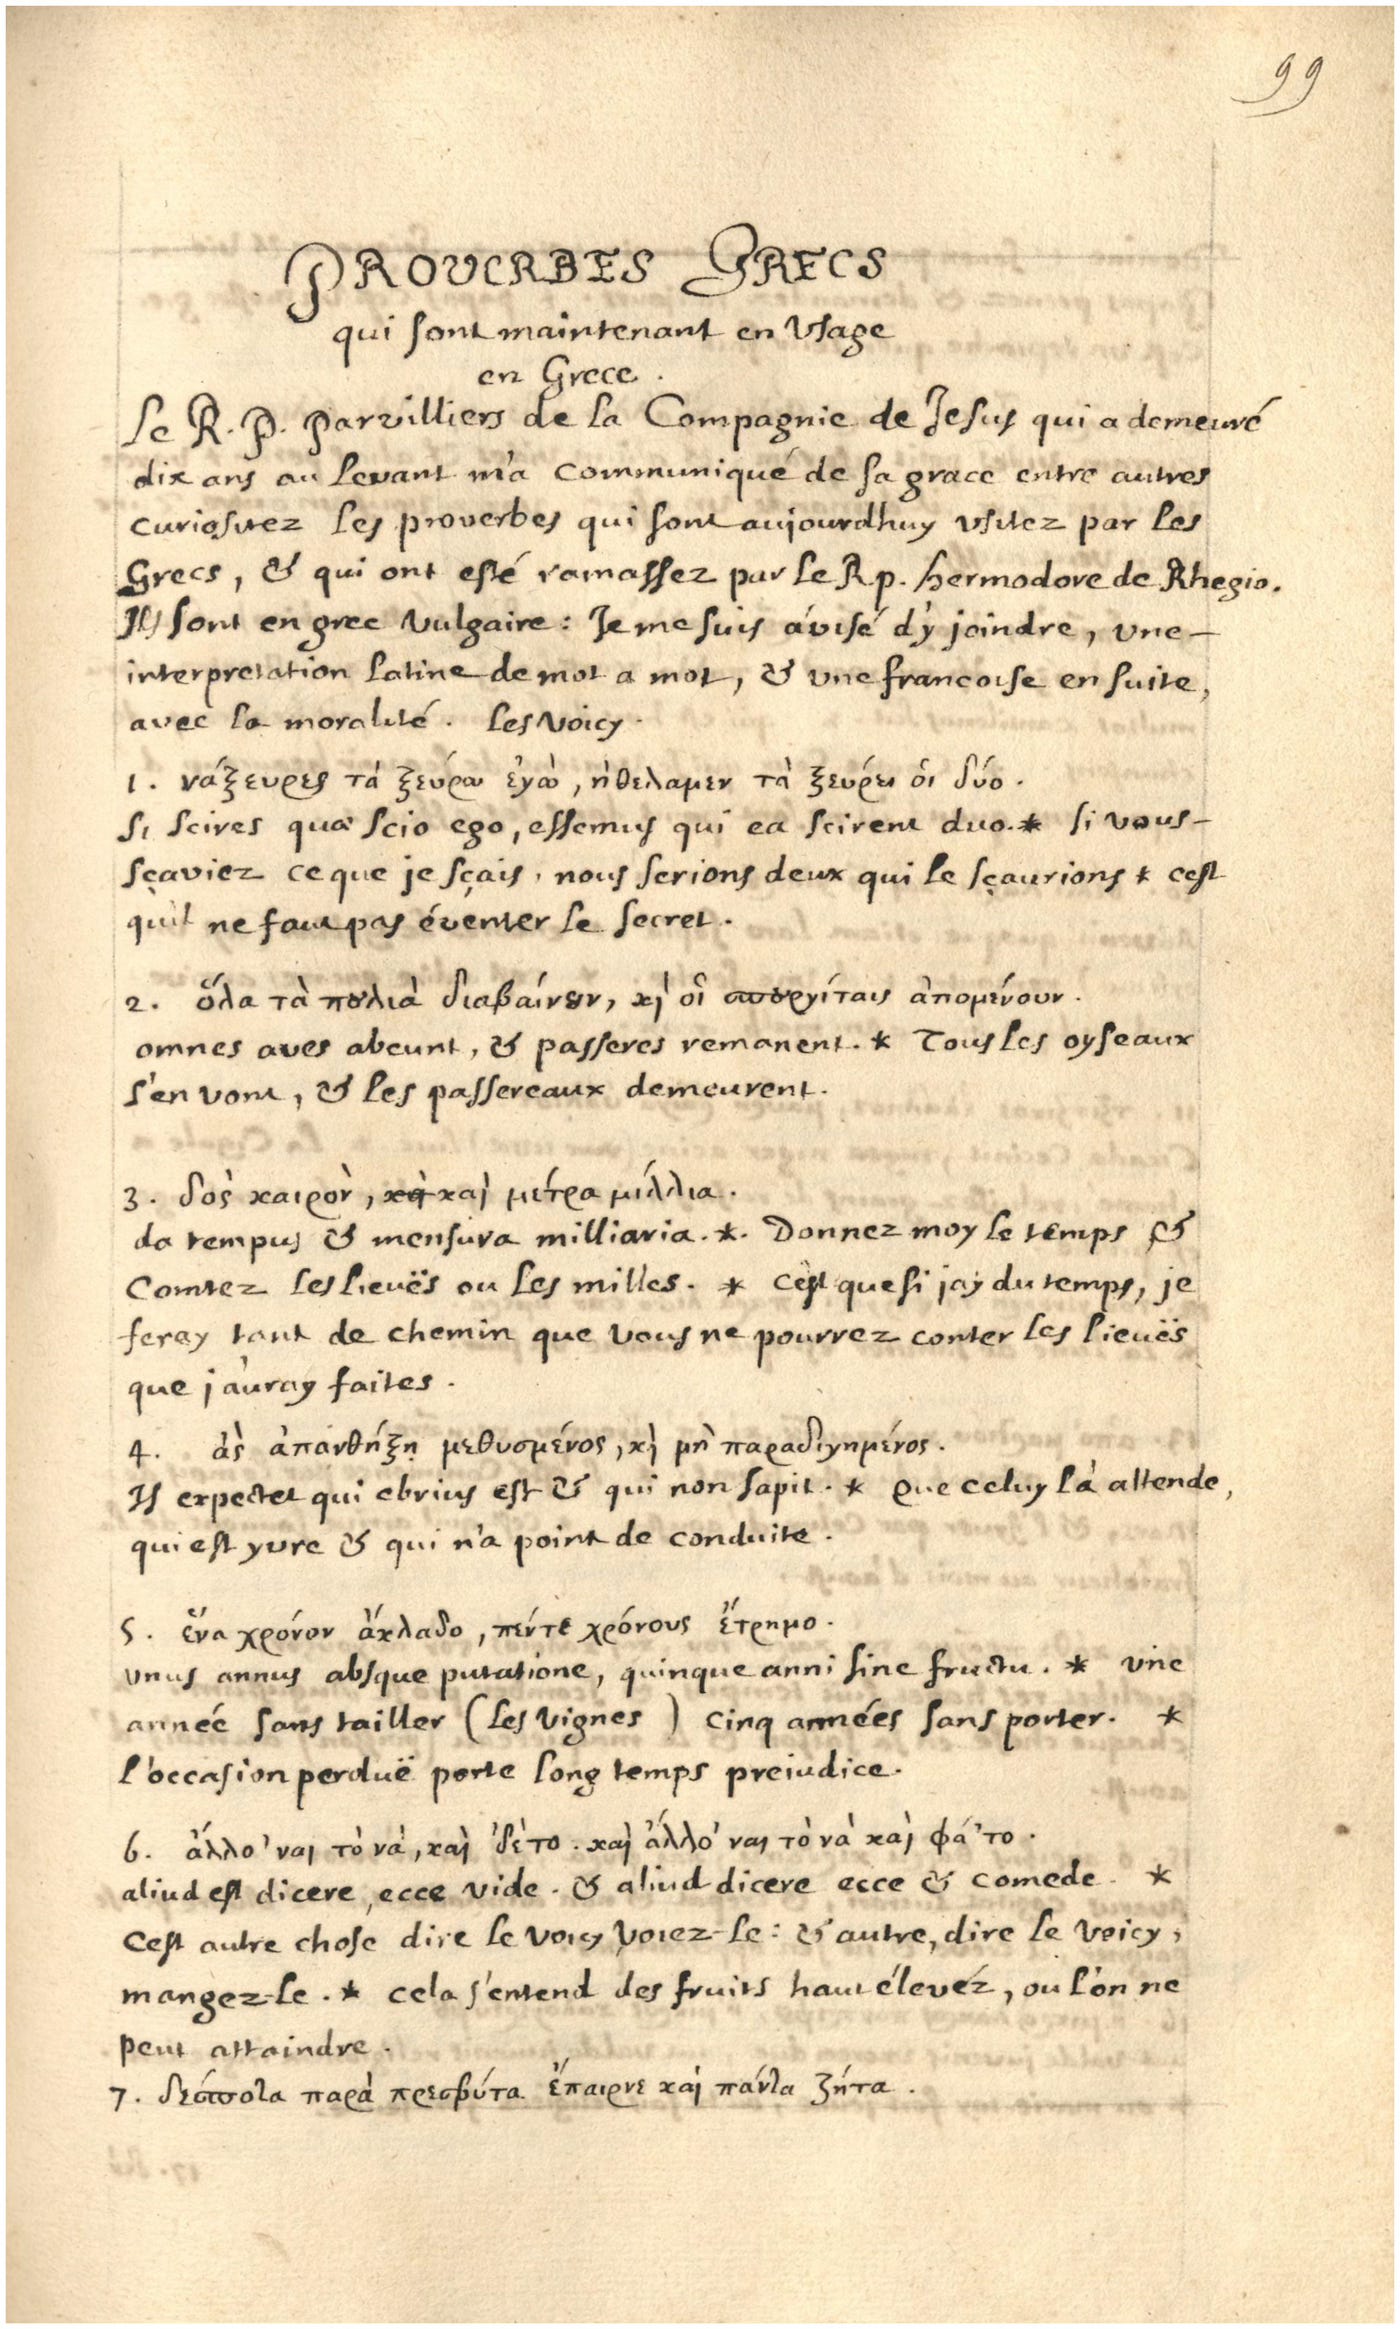 99
PROVERBES GRECS
qui sont maintenant en Vsage
en Grece.
Le R. P. Parvilliers de la Compagnie de Jesus qui a demeuré
dix ans au Levant m'a communiqué de sa grace entre autres
curiositez les proverbes qui sont aujourdhuy vsitez par les
Grecs, & qui ont esté ramassez par le R p. hermodore de Rhegio.
Ils sont en grec vulgaire: Je me suis ávisé d'y joindre, une—
interpretation latine de mot a mot, & vne francoise en suite,
avec la moralité. les voicy.
1. νάξευρες τὰ ξεύρω ἐγὼ, ἠθελαμεν τὰ ξεύρει ὁι δύο.
si scires quæ scio ego, essemus qui ea scirent duo.* si vous—
sçaviez ce que je sçais, nous serions deux qui le sçaurions * cest
qu'il ne faut pas éventer le secret.
2. ὅλα τὰ πȣλιὰ διαβαίνȣν, κὶ οἱ σπȣργίταις ἀπομένουν.
omnes aves abeunt, & passeres remanent. * Tous les oyseaux
s'en vont, & les passereaux demeurent.
3. δὸς καιρὸν, καὶ μέτρα μίλλια.
da tempus & mensura milliaria. *. Donnez moy le temps &
Comtez les lieuës ou les milles. * c'est que si j'ay du temps, je
feray tant de chemin que vous ne pourrez conter les lieuës
que j'auray faites.
4. ἀς ἀπανθήξῃ μεθυσμένος, κὶ μὴ παραδιγημένος.
Is expectet qui ebrius est & qui non sapit. * Que celuy là attende,
qui est yvre & qui n'a point de conduite.
5. ἕνα χρόνον ἄκλαδο, πέντε χρόνους ἔτρημο.
vnus annus absque putatione, quinque anni sine fructu. * vne
année sans tailler (les vignes) cinq années sans porter. *
l'occasion perduë porte long temps preiudice.
6. ἄλλο 'ναι τὸ νὰ, καὶ 'δέ το. καὶ ἄλλο 'ναι τὸ νὰ καὶ φά 'το.
aliud est dicere, ecce vide. & aliud dicere ecce & comede. *
Cest autre chose dire le voicy voiez-le: & autre, dire le voicy,
mangez-le. * cela s'entend des fruits haut élevéz, ou l'on ne
peut attaindre.
7. δέσποτα παρὰ πρεσβύτα ἔπαιρνε καὶ πάντα ζήτα.